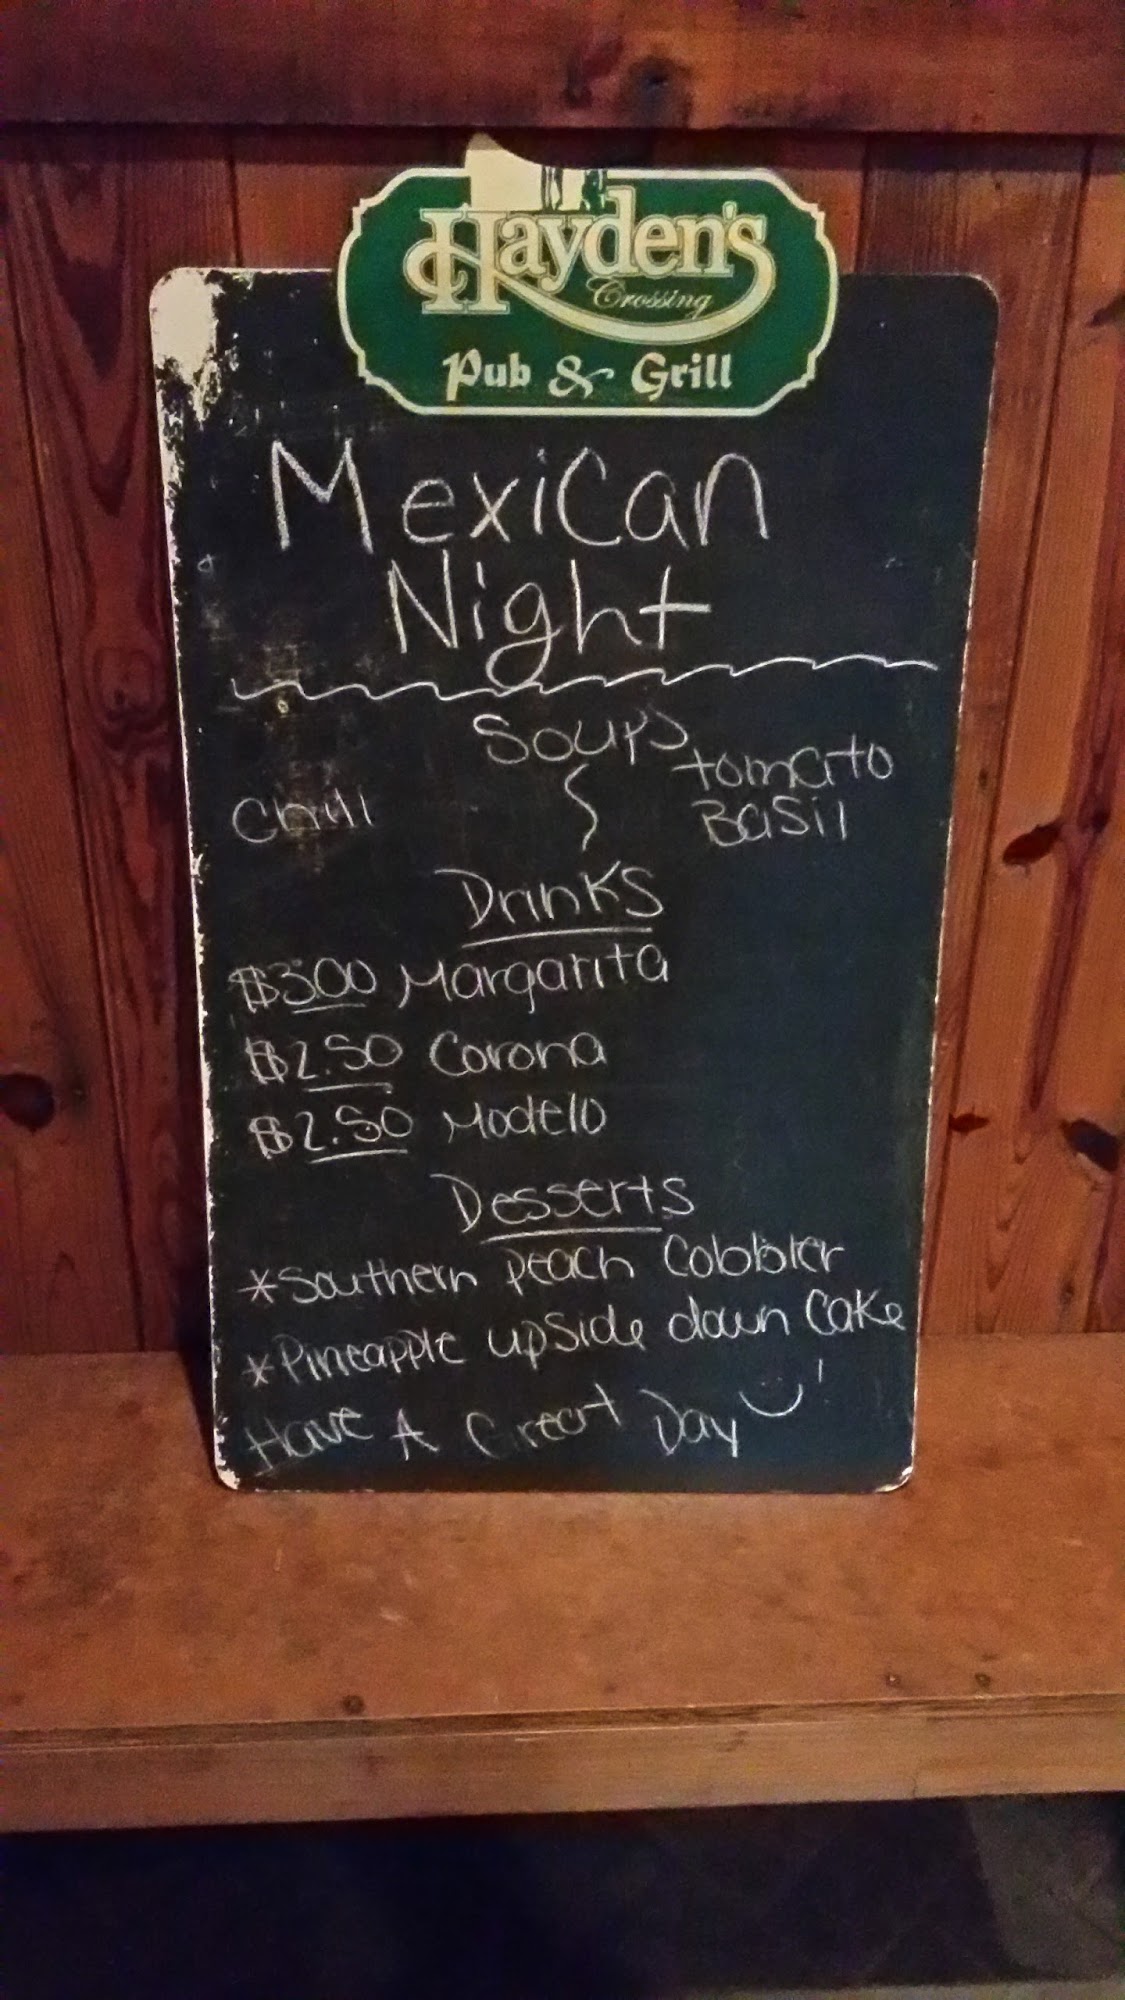 Hayden's
Crossing
Pub & Grill
Mexican
Night
Soups
Chili
tomato
Basil
Drinks
$3.00 Margarita
$2.50 Corona
$2.50 Modelo
Desserts
*Southern peach Cobbler
*Pineapple upside down Cake
Have A Great Day !